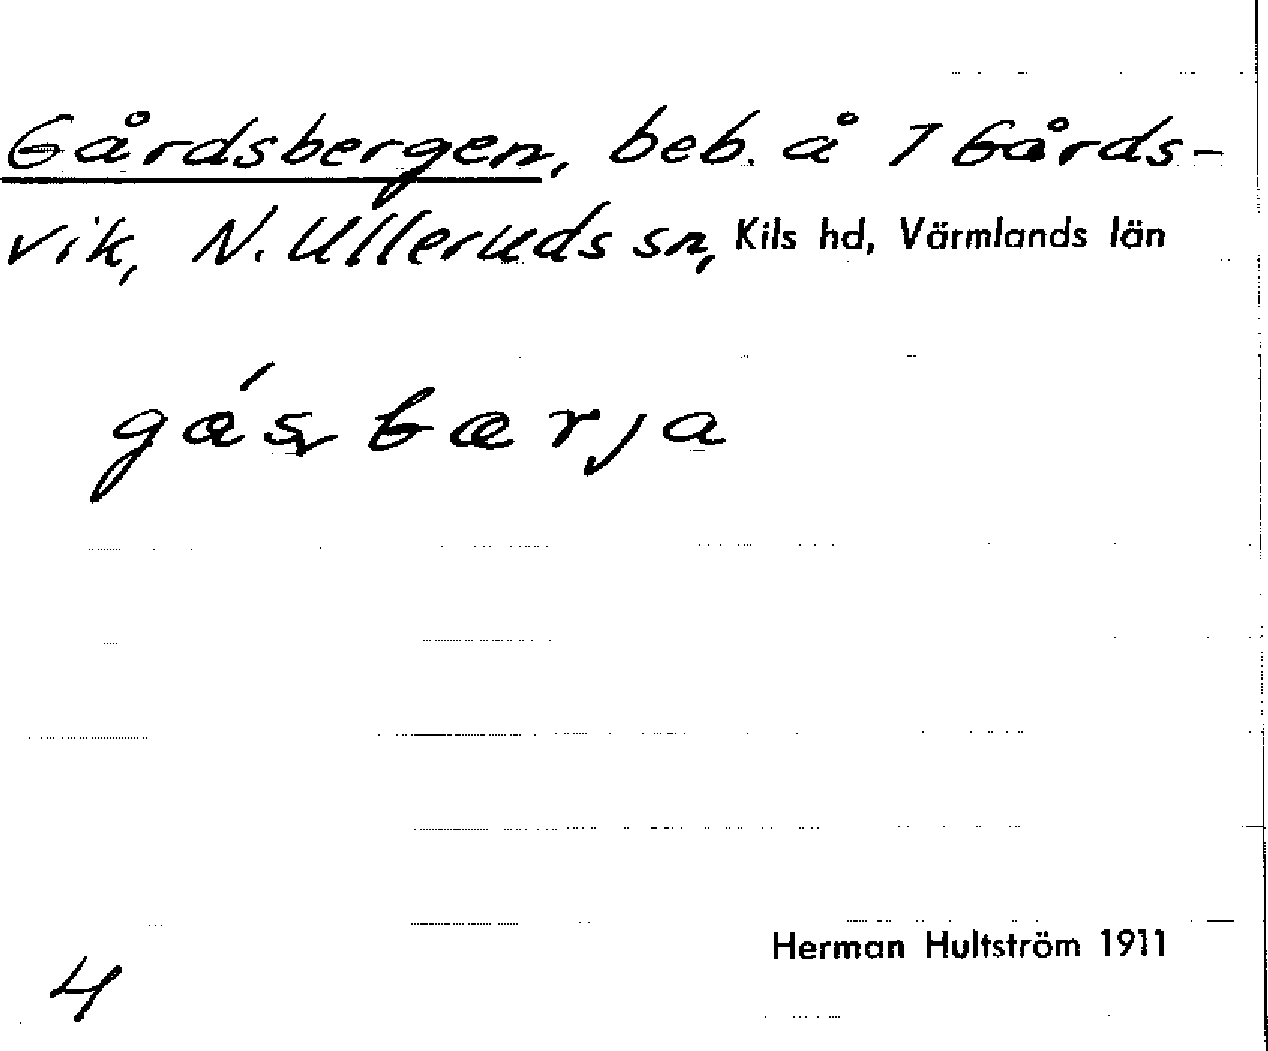 Gårdsbergen, beb. å 7 Gårds-
vik, N. Ulleruds sn, Kils hd, Värmlands län
gáʂbærja
Herman Hultström 1911
4